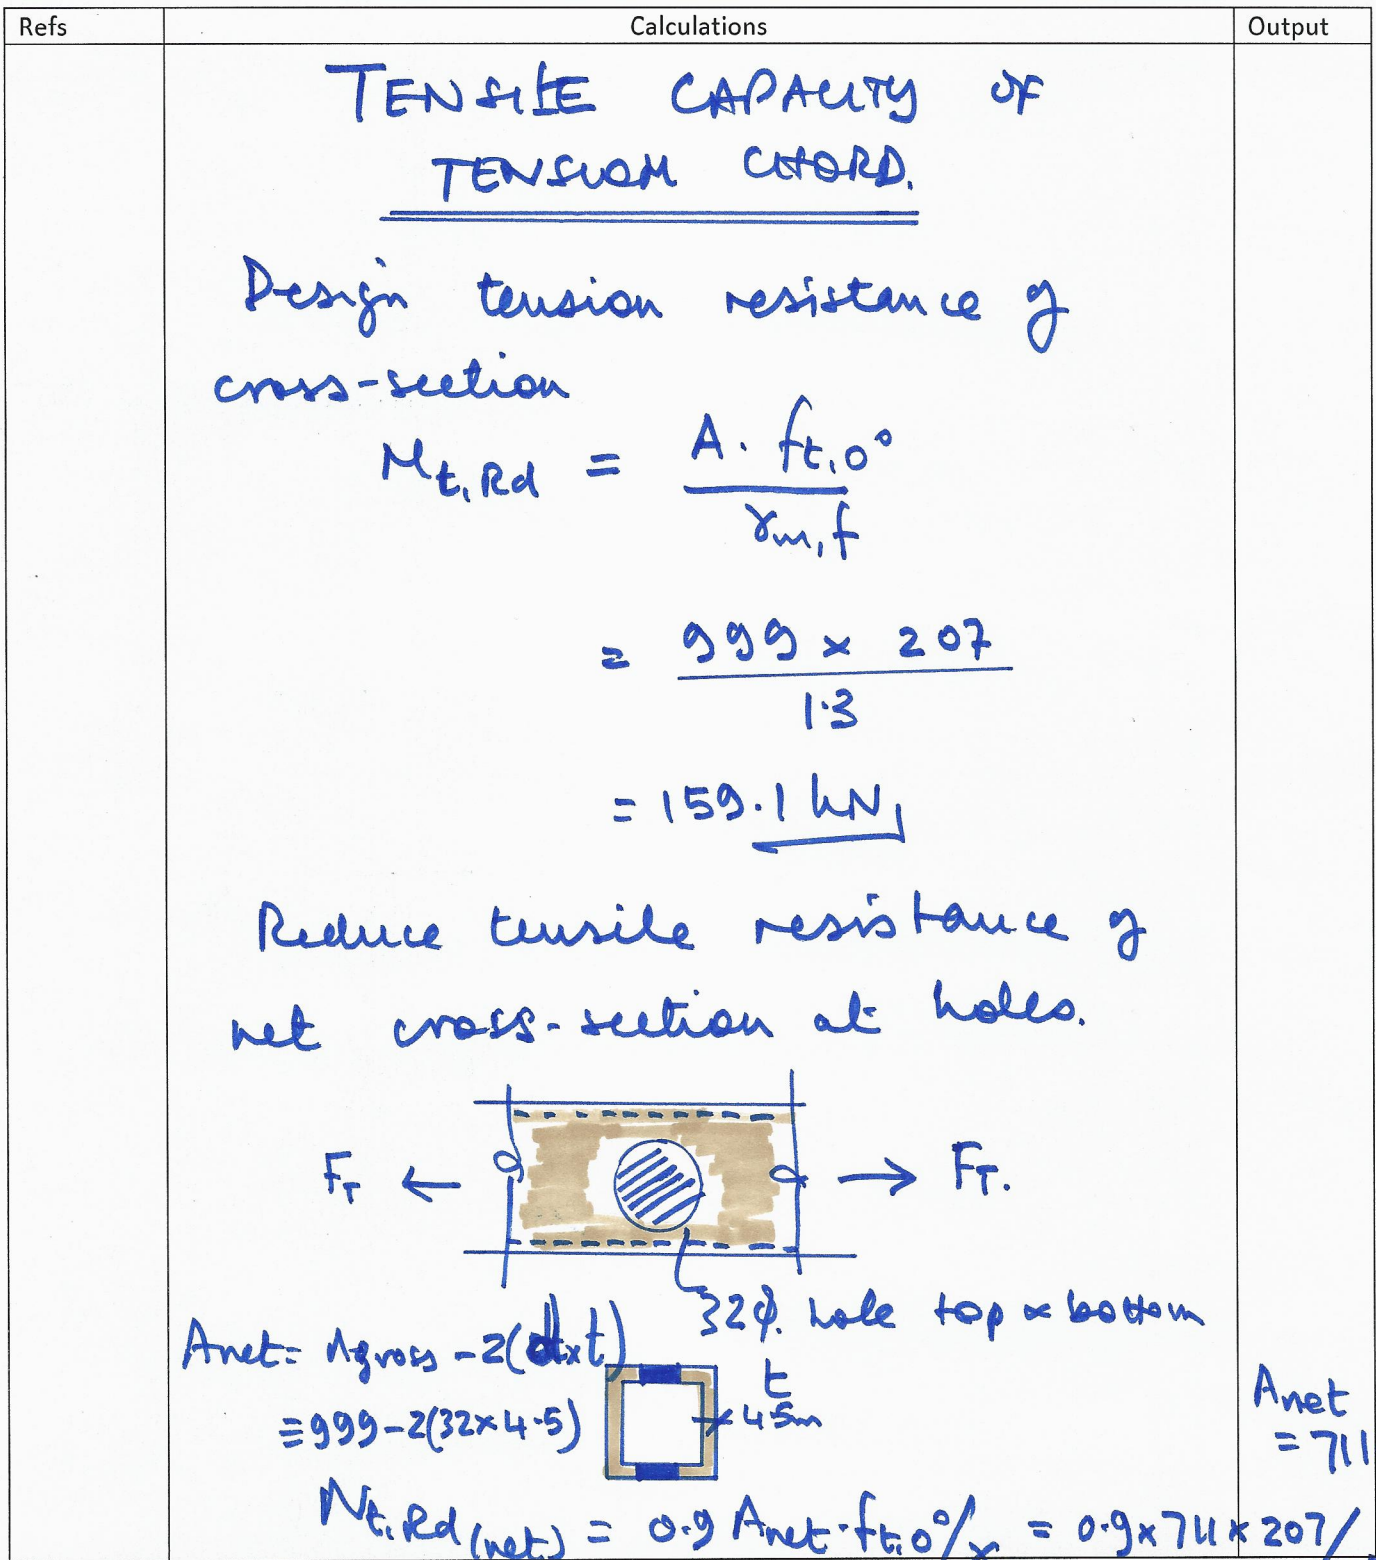 Refs Calculations Output
TENSILE CAPACITY OF
TENSION CHORD.
Design tension resistance of
cross-section
Nt,Rd = A. ft,0° / γm,f
= 999 x 207 / 1.3
= 159.1 kN
Reduce tensile resistance of
net cross-section at holes.
FT ← → FT.
32φ. hole top & bottom
Anet = Agross - 2(dxt)
t
= 999-2(32x4.5) 4.5m
Anet
= 711
Nt,Rd (net) = 0.9 Anet.ft,0°/γ = 0.9x711x207/